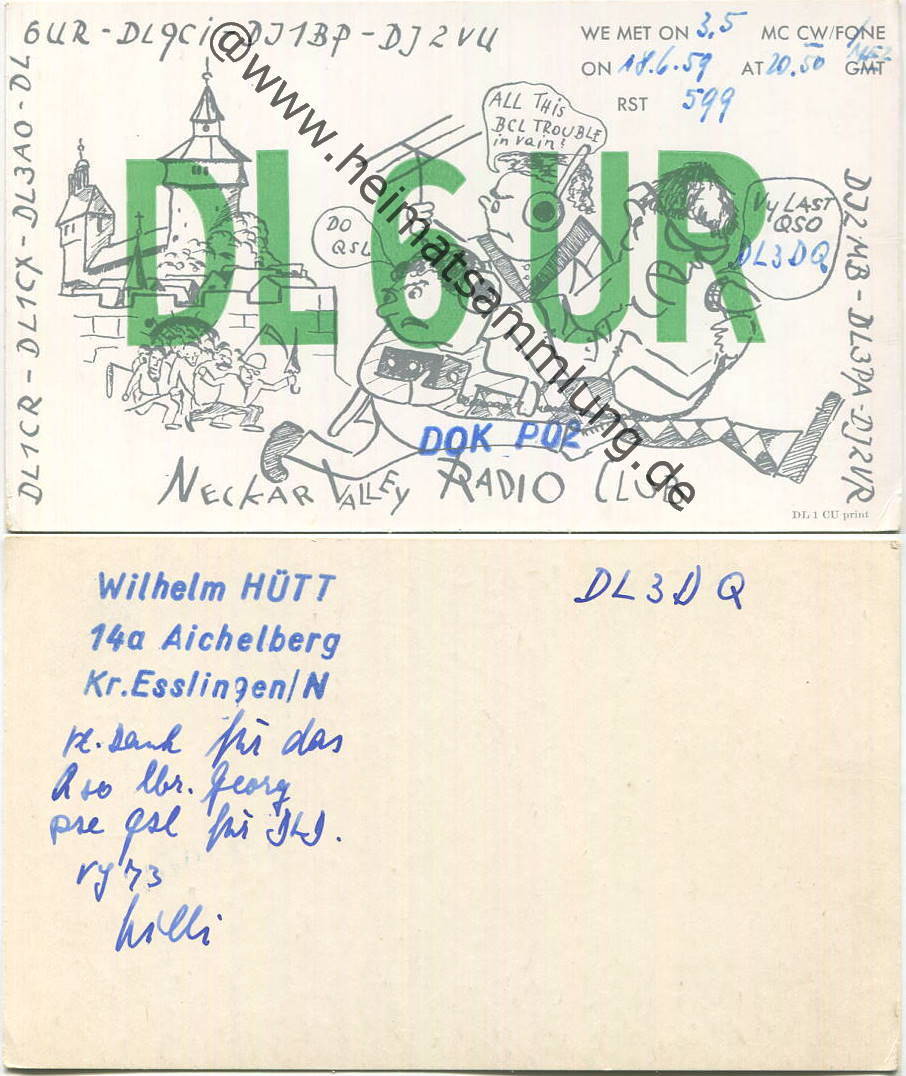 6UR - DL9Ci - DJ1BP - DJ2VU
DL1CR - DL1CX - DL3AO - DL
WE MET ON 3,5 MC CW/FONE
ON 18.6.59 AT 20.50 GMT MEZ
RST 599
ALL THiS
BCL TROUBLE
in vain!
DO
QSL
Vy LAST
QSO
DL3DQ
DL6UR
DJ2MB - DL3PA - DJ2VR
DOK P02
NECKAR VALLEY RADIO CLUB
DL 1 CU print
@www.heimatsammlung.de
Wilhelm HÜTT
14a Aichelberg
Kr.Esslingen/N
DL3DQ
Dank für das
lbr. Georg
pse qsl für DLD.
vy 73
Willi